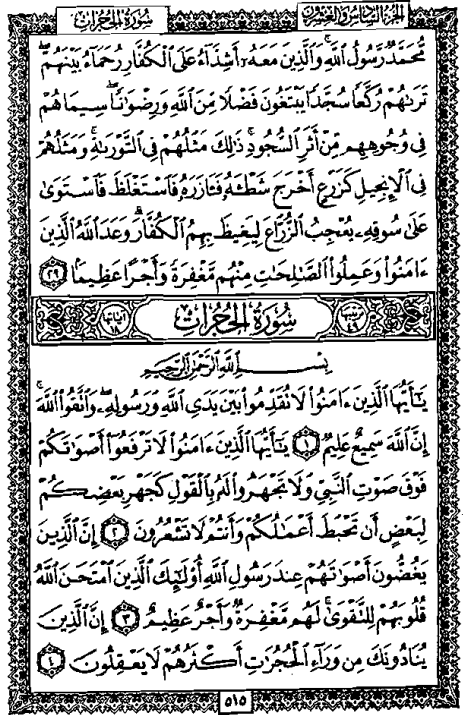 الجزء السادس والعشرون
سورة الحجرات
مُّحَمَّدٌ رَّسُولُ ٱللَّهِ وَٱلَّذِينَ مَعَهُۥٓ أَشِدَّآءُ عَلَى ٱلْكُفَّارِ رُحَمَآءُ بَيْنَهُمْ ۖ
تَرَىٰهُمْ رُكَّعًا سُجَّدًا يَبْتَغُونَ فَضْلًا مِّنَ ٱللَّهِ وَرِضْوَٰنًا ۖ سِيمَاهُمْ
فِى وُجُوهِهِم مِّنْ أَثَرِ ٱلسُّجُودِ ۚ ذَٰلِكَ مَثَلُهُمْ فِى ٱلتَّوْرَىٰةِ ۚ وَمَثَلُهُمْ
فِى ٱلْإِنجِيلِ كَزَرْعٍ أَخْرَجَ شَطْـَٔهُۥ فَـَٔازَرَهُۥ فَٱسْتَغْلَظَ فَٱسْتَوَىٰ
عَلَىٰ سُوقِهِۦ يُعْجِبُ ٱلزُّرَّاعَ لِيَغِيظَ بِهِمُ ٱلْكُفَّارَ ۗ وَعَدَ ٱللَّهُ ٱلَّذِينَ
ءَامَنُوا۟ وَعَمِلُوا۟ ٱلصَّٰلِحَٰتِ مِنْهُم مَّغْفِرَةً وَأَجْرًا عَظِيمًۢا ٢٩
ترتيبها ٤٩ سورة الحجرات آياتها ١٨
بِسْمِ ٱللَّهِ ٱلرَّحْمَٰنِ ٱلرَّحِيمِ
يَٰٓأَيُّهَا ٱلَّذِينَ ءَامَنُوا۟ لَا تُقَدِّمُوا۟ بَيْنَ يَدَىِ ٱللَّهِ وَرَسُولِهِۦ ۖ وَٱتَّقُوا۟ ٱللَّهَ ۚ
إِنَّ ٱللَّهَ سَمِيعٌ عَلِيمٌ ١ يَٰٓأَيُّهَا ٱلَّذِينَ ءَامَنُوا۟ لَا تَرْفَعُوٓا۟ أَصْوَٰتَكُمْ
فَوْقَ صَوْتِ ٱلنَّبِىِّ وَلَا تَجْهَرُوا۟ لَهُۥ بِٱلْقَوْلِ كَجَهْرِ بَعْضِكُمْ
لِبَعْضٍ أَن تَحْبَطَ أَعْمَٰلُكُمْ وَأَنتُمْ لَا تَشْعُرُونَ ٢ إِنَّ ٱلَّذِينَ
يَغُضُّونَ أَصْوَٰتَهُمْ عِندَ رَسُولِ ٱللَّهِ أُو۟لَٰٓئِكَ ٱلَّذِينَ ٱمْتَحَنَ ٱللَّهُ
قُلُوبَهُمْ لِلتَّقْوَىٰ ۚ لَهُم مَّغْفِرَةٌ وَأَجْرٌ عَظِيمٌ ٣ إِنَّ ٱلَّذِينَ
يُنَادُونَكَ مِن وَرَآءِ ٱلْحُجُرَٰتِ أَكْثَرُهُمْ لَا يَعْقِلُونَ ٤
٥١٥